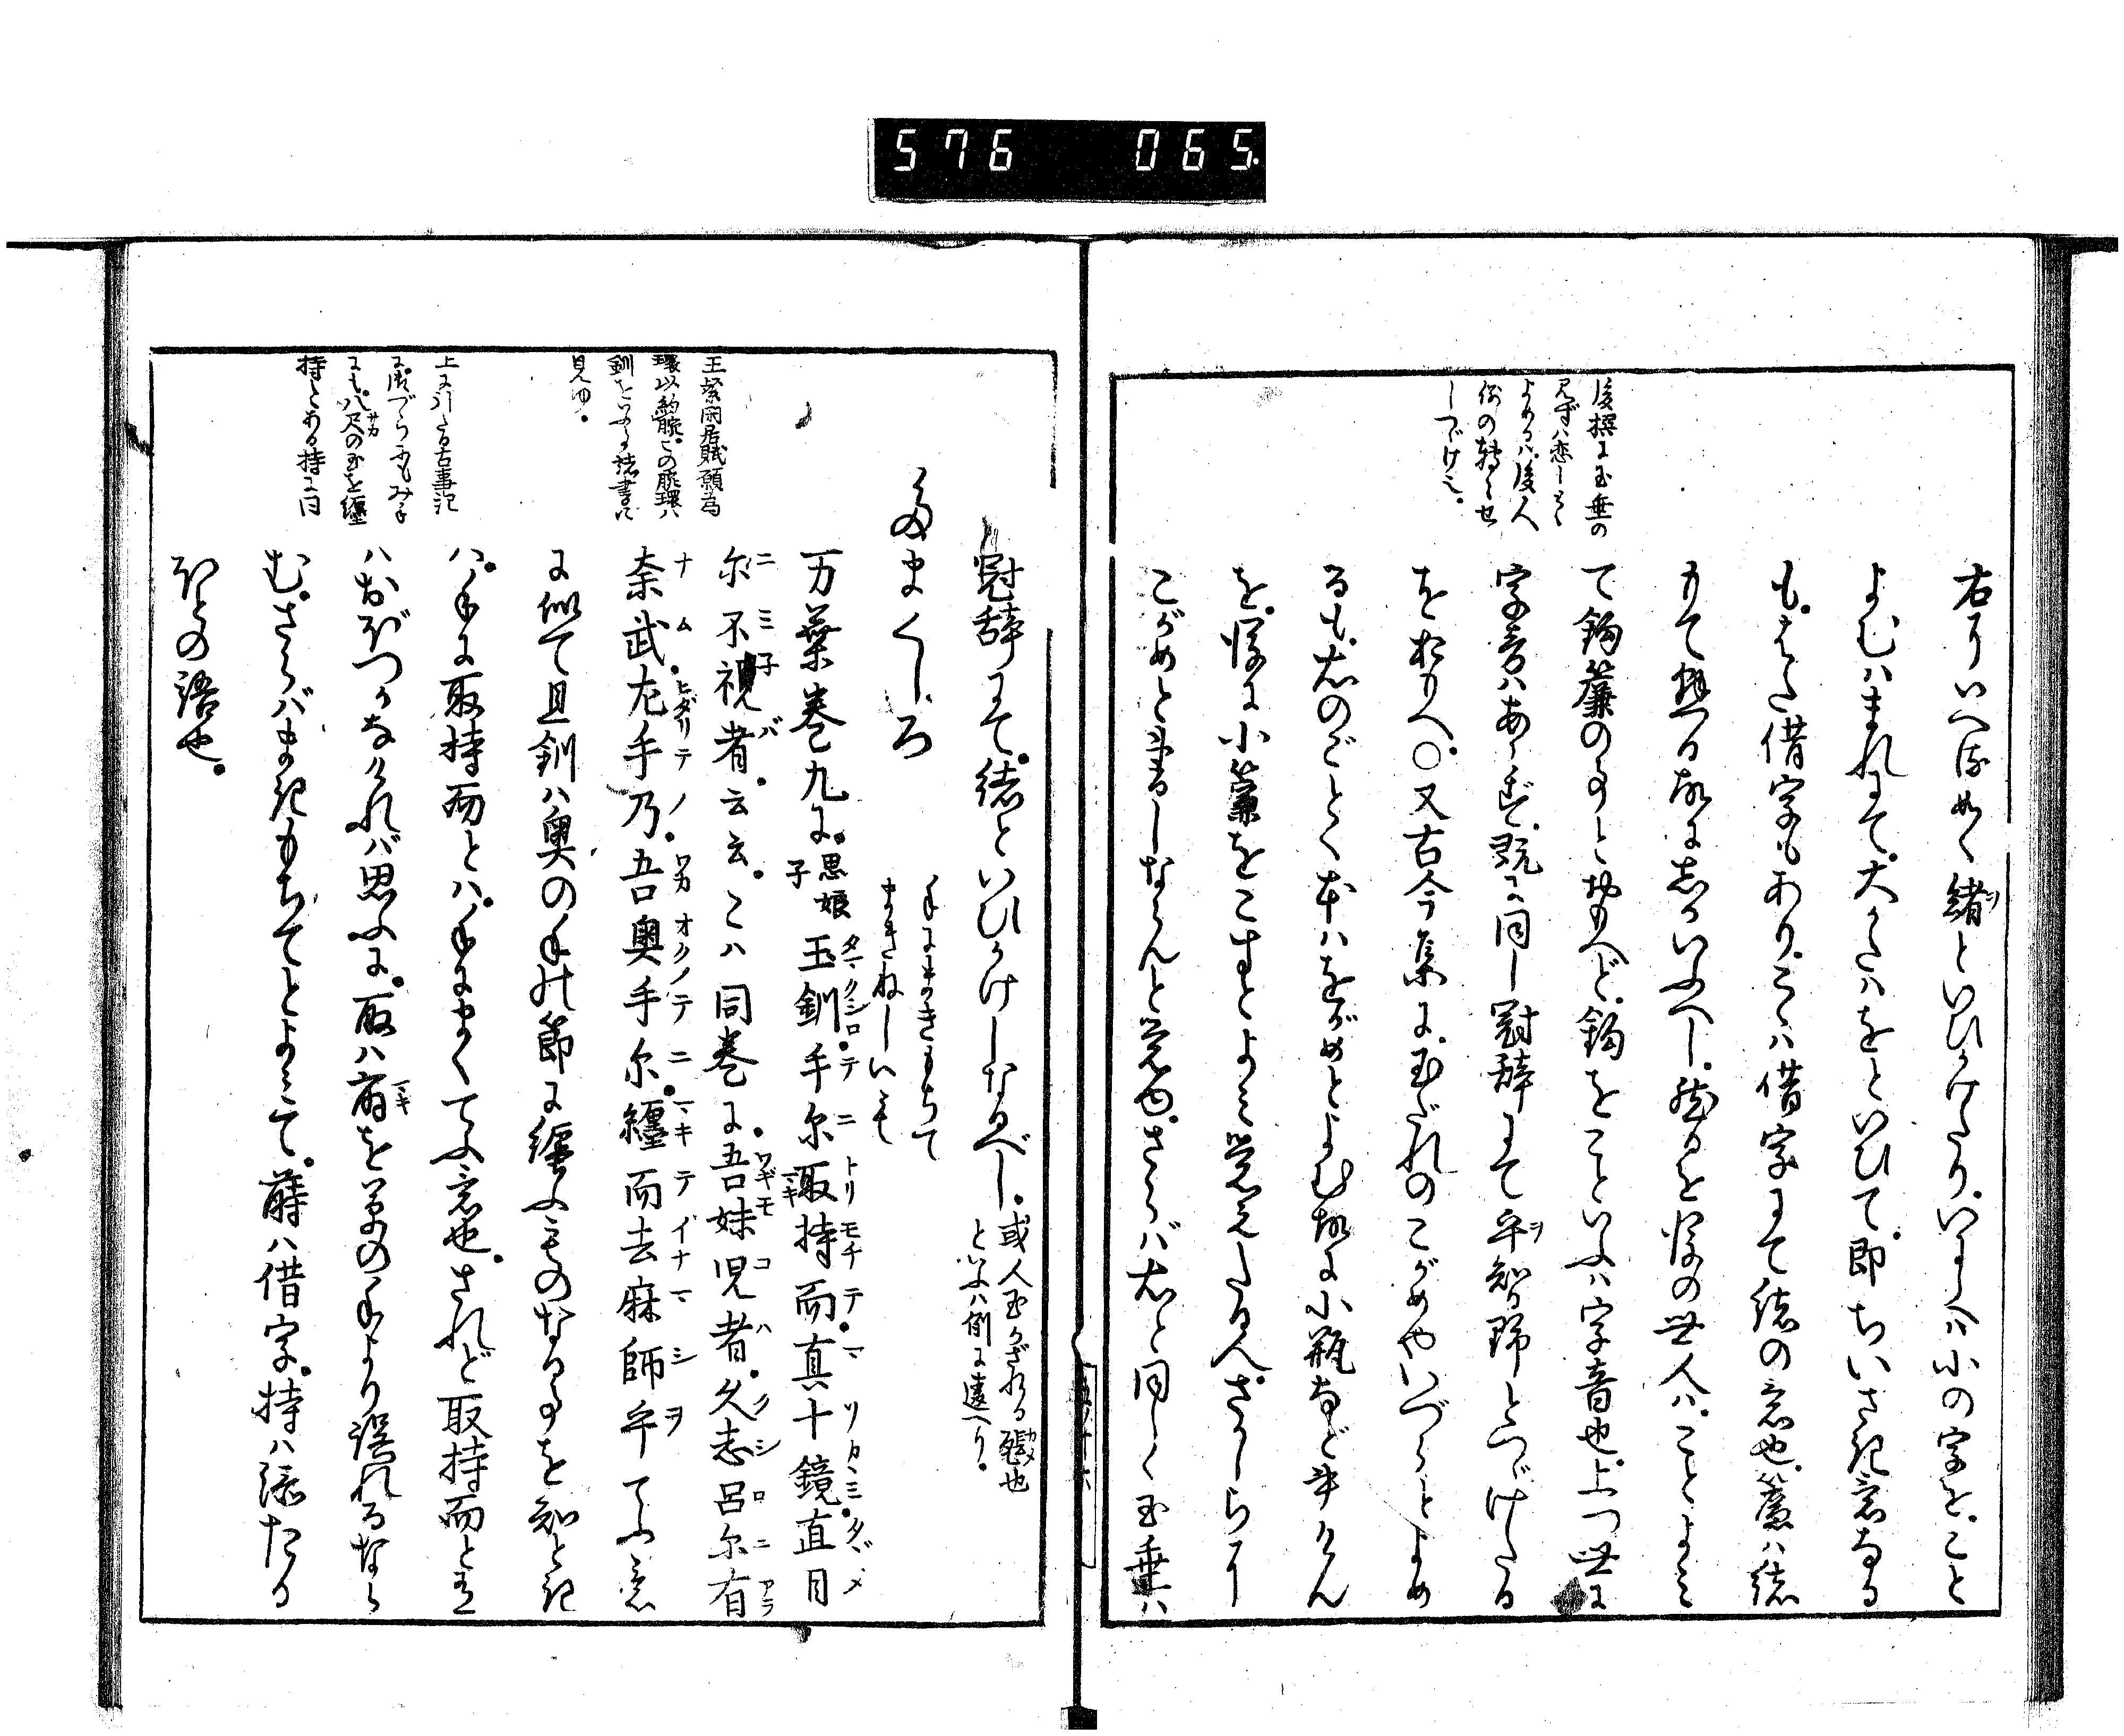 576 065
後撰に玉垂の
見ずハ恋しく
よめるハ後人
俗の轉々せ
しつゞけ也。
右にいへる如く緒といひかけたり。いにしへハ小の字を。こと
よむハまれにて。大かたハをといひて。即ちいさき意なる
も。はた借字もあり。こゝハ借字にて緒の意也。簾ハ緒
もて懸る故にしかいふべし。然るを後の世人ハ。ことよみ
て鈎簾の事とおもへど。鈎をこといふハ字音也。上つ世に
字音ハあらず。既に同し冠辞にて乎知野とつゞけたる
をおもへ。〇又古今集に。玉だれのこがめやいづらとよめ
るも。右のごとく本ハをがめとよむ故に小瓶など書けん
を。後に小簾をこすとよみ覚えたる人。さかしらに
こがめと書しならんと覚ゆ。さらバ右と同しく玉垂ハ
冠辞にて。緒といひかけしなるべし。或人玉かざれる瓺也
といふハ例に違へり。
たまくしろ
手にまきもちて
まきねしいも
王粲閑居賦願為
環以約腕。この腕環ハ
釧をいふよし諸書に
見ゆ。
万葉巻九に。思娘子 玉釧手尓取持而真十鏡。直目
尓不視者。云云。こハ同巻に。吾妹児者。久志呂尓有
奈武左手乃。吾奥手尓。纒而去麻師乎てふ意
に似て且釧ハ奥の手の節に纒ふものなる事を知とき
ハ。手に取持而とハ。手にまくてふ意也。されど取持而と有
ハおぼつかなけれバ思ふに。取ハ
を草の手より誤れるなら
む。さらバまきもちてとよみて。蒔ハ借字。持ハ添たる
ほどの語也。
上に引たる古事記
に。くづらふもみな
にも。八尺の玉を纒
持とある持に同